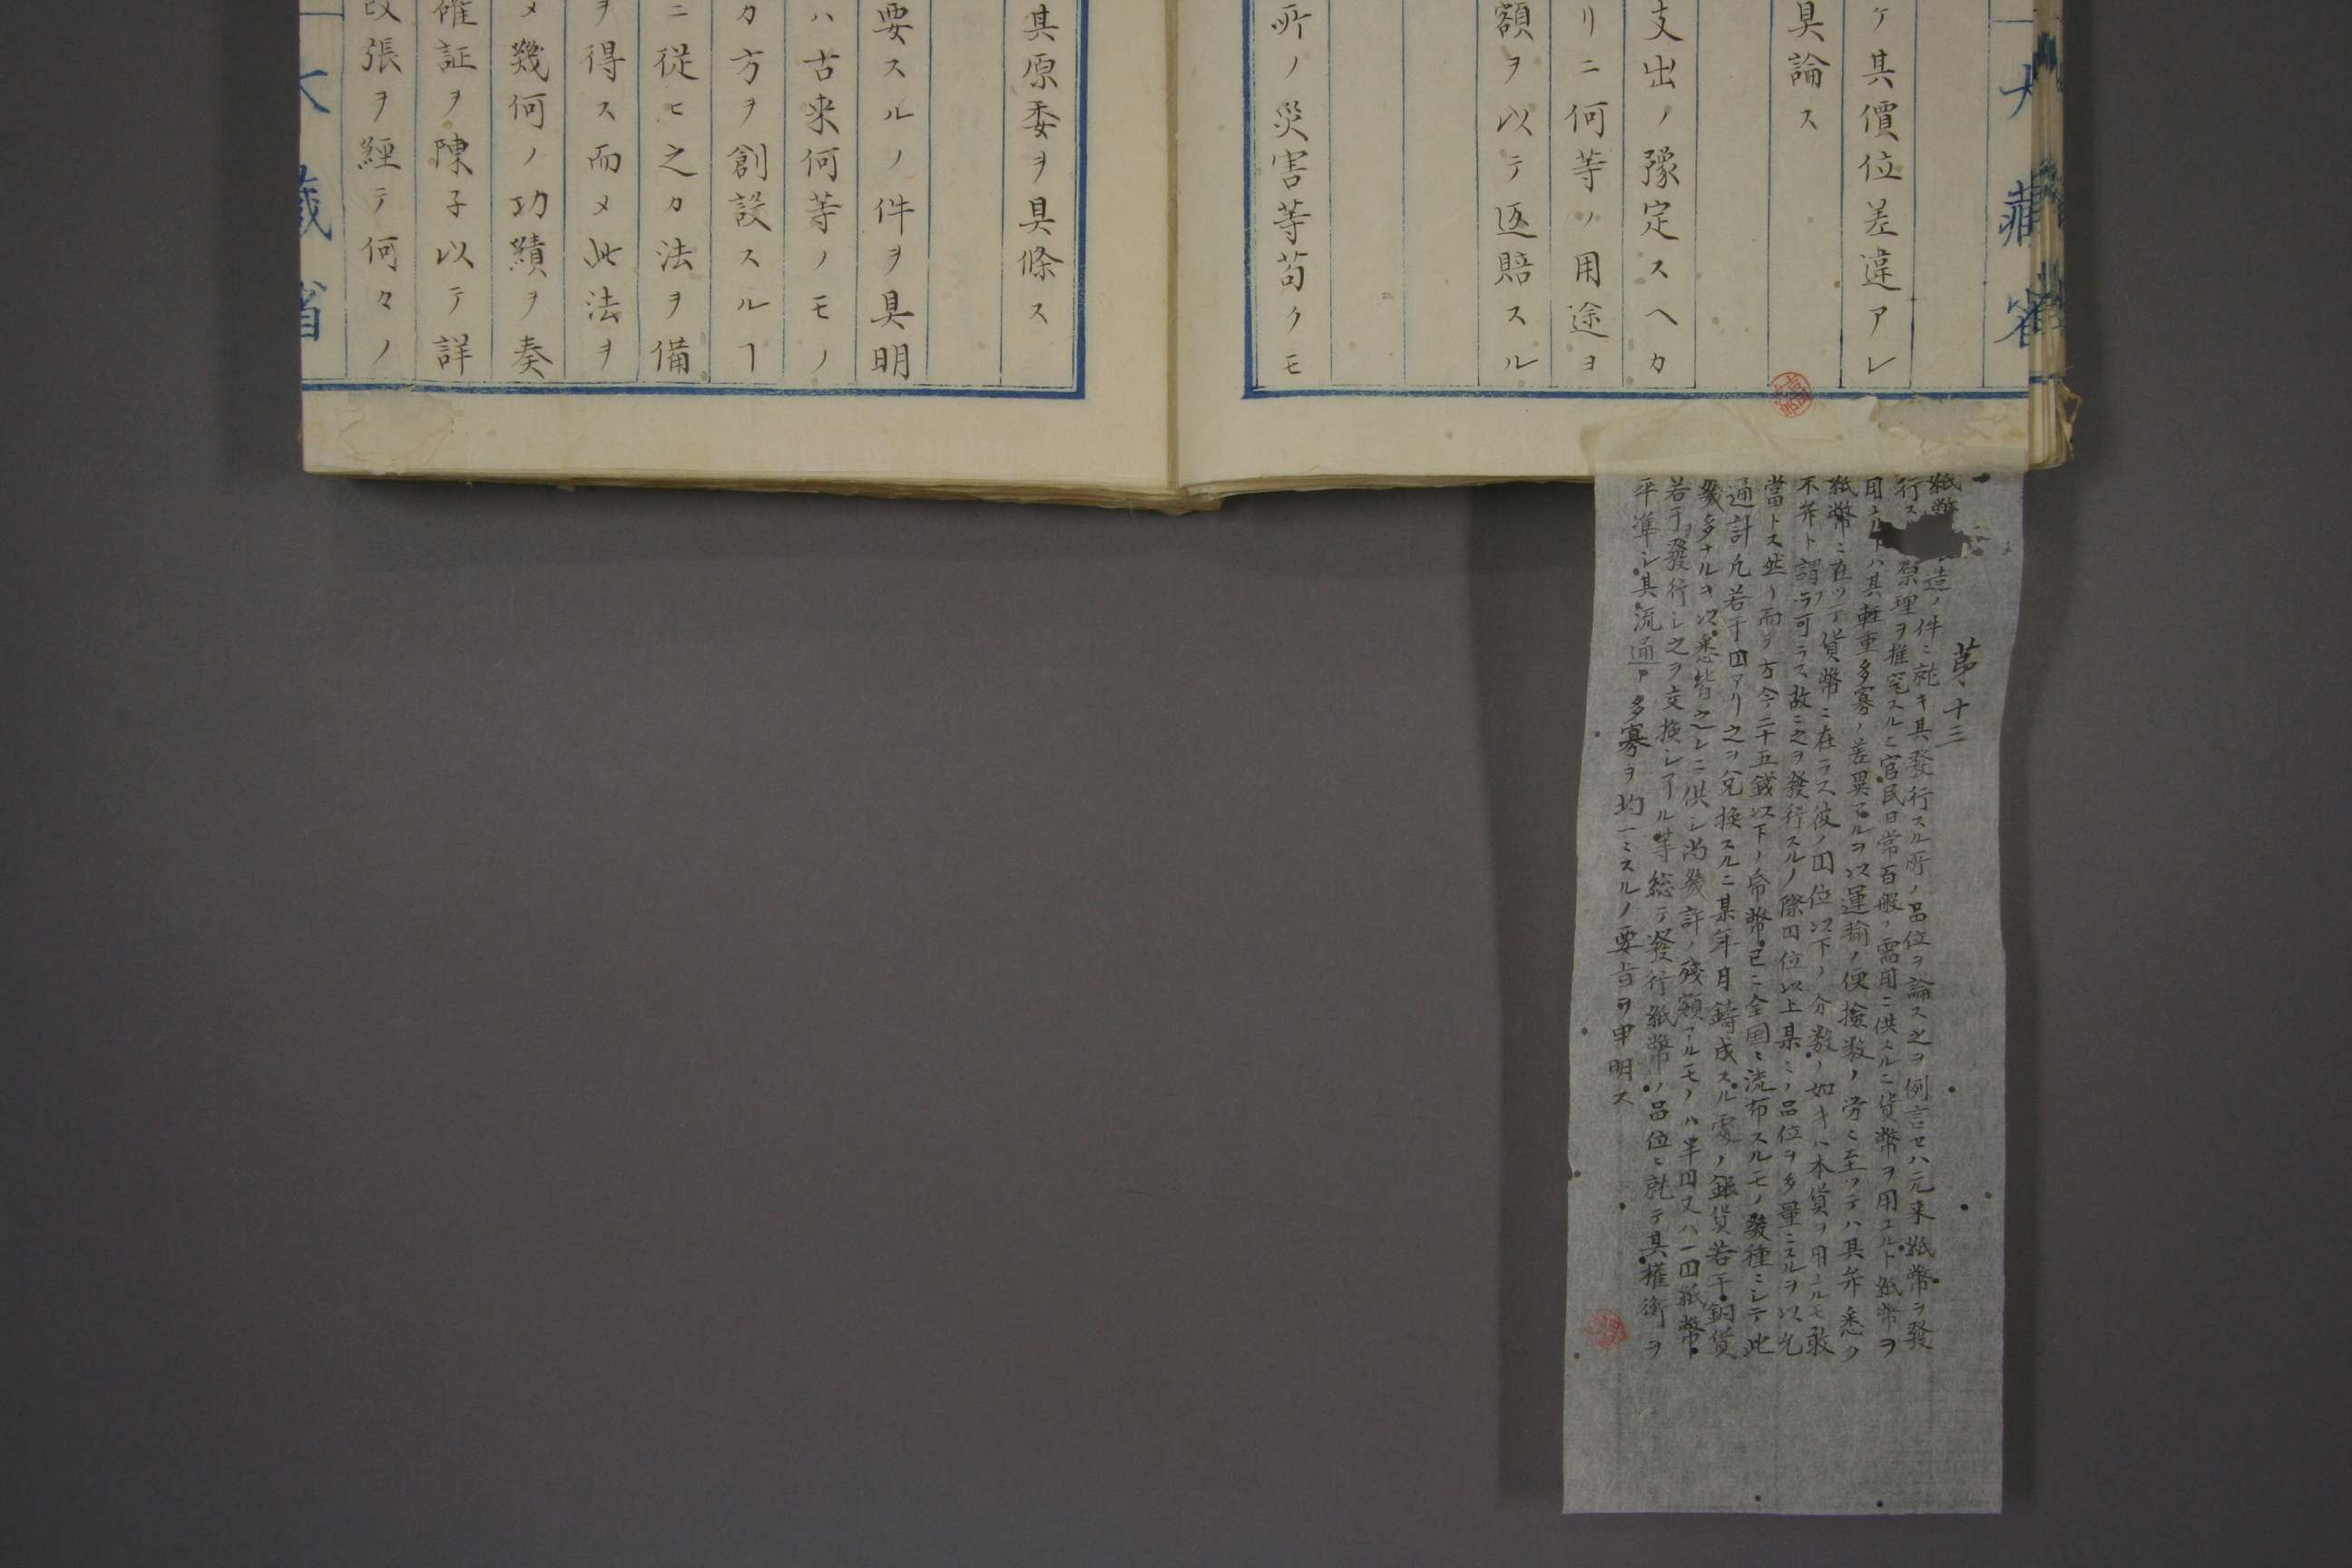 大藏省
ケ其價位差違アレ
具論ス
支出ノ豫定スヘカ
リニ何等ノ用途ヨ
額ヲ以テ返賠スル
所ノ災害等苟クモ
其原委ヲ具條ス
要スルノ件ヲ具明
ハ古来何等ノモノ
カ方ヲ創設スルヿ
ニ従ヒ之カ法ヲ備
ヲ得ス而メ此法ヲ
メ幾何ノ功績ヲ奏
確証ヲ陳子以テ詳
改張ヲ經テ何々ノ
大藏省
第十三
紙幣造ノ件ニ就キ其發行スル所ノ品位ヲ論ス之ヲ例言セハ元来紙幣ヲ發
行ス原理ヲ推究スルニ官民日常百般ノ需用ニ供スルニ貨幣ヲ用ユルト紙幣ヲ
用ユルトハ其軽重多寡ノ差異アルヲ以運輸ノ便撿数ノ労ニ至ツテハ其弁悉ク
紙幣ニ在ツテ貨幣ニ在ラス彼ノ円位以下ノ分数ノ如キハ本貨ヲ用ユルモ敢
不弁ト謂フ可ラス故ニ之ヲ發行スルノ際円位以上某々ノ品位ヲ多量ニスルヲ以允
當トス然リ而ヲ方今二十五錢以下ノ紙幣已ニ全国ニ流布スルモノ幾種ニシテ此
通計凢若干円アリ之ヲ兌換スルニ某年月鋳成スル處ノ銀貨若干銅貨
幾多ナルヲ以悉皆之レニ供シ尚幾許ノ残額アルモノハ半円又ハ一円紙幣
若干發行シ之ヲ交換シアル等総テ發行紙幣ノ品位ニ就テ其権衡ヲ
平準シ其流通ノ多寡ヲ均一ニスルノ要旨ヲ申明ス